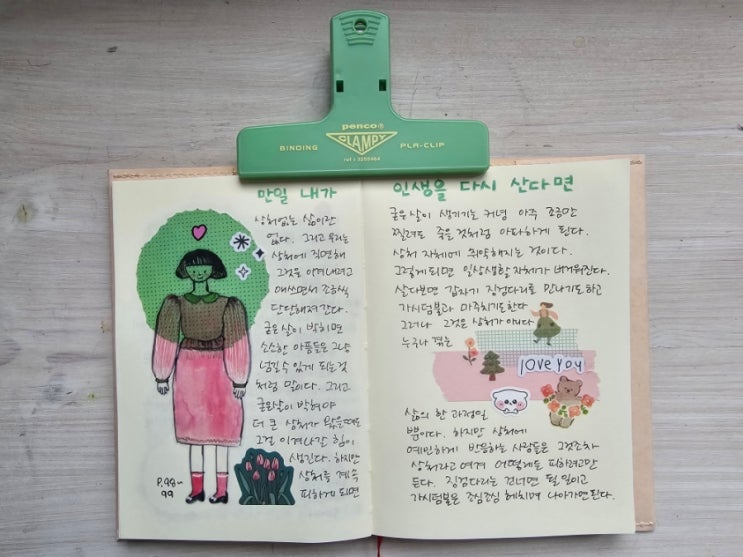 penco®
CLAMPY
BINDING PLA-CLIP
만일 내가
상처없는 삶이란
없다. 그리고 우리는
상처에 직면해
그것을 이겨내려고
애쓰면서 조금씩
단단해져 간다.
굳은살이 박히면
소소한 아픔들은 그냥
넘길 수 있게 되는 것
처럼 말이다. 그리고
굳은살이 박혀야
더 큰 상처가 왔을때도
그걸 이겨나갈 힘이
생긴다. 하지만
상처를 계속
피하게 되면
P.98~
99
인생을 다시 산다면
굳은살이 생기기는 커녕 아주 조금만
찔려도 죽을 것처럼 아파하게 된다.
상처 자체에 취약해지는 것이다.
그렇게 되면 일상생활 자체가 버거워진다.
살다보면 갑자기 징검다리를 만나기도 하고
가시덤불과 마주치기도 한다
그러나 그것은 상처가 아니다
누구나 겪는
love you
삶의 한 과정일
뿐이다. 하지만 상처에
예민하게 반응하는 사람들은 그것조차
상처라고 여겨 어떻게든 피하려고만
든다. 징검다리는 건너면 될 일이고
가시덤불은 조심조심 헤치며 나아가면 된다.